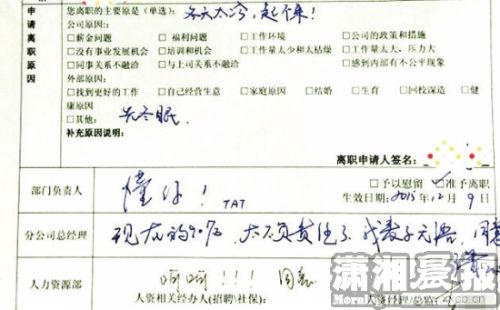 申请离职原因
您离职的主要原是（单选）：冬天太冷，起不来！
公司原因：
□薪金问题 □福利问题 □工作环境 □公司的政策和措施
□没有事业发展机会 □培训和机会 □工作量太少和太枯燥 □工作量太大，压力大
□同事关系不融洽 □与上司关系不融洽 □感到内部有不公平现象
外部原因：
□找到更好的工作 □自己经营生意 □家庭原因 □结婚 □生育 □回校深造 □健康原因
□其他：先冬眠。
补充原因说明：
离职申请人签名：
部门负责人 懂你！TAT □予以慰留 □准予离职
生效日期：2015年12月9日
分公司总经理 现在的90后，太不负责任了，我表示无语。同意
人力资源部 呵呵!!! 同意
人资相关经办人(招聘\社保): 人资经理/总监：
潇湘晨报